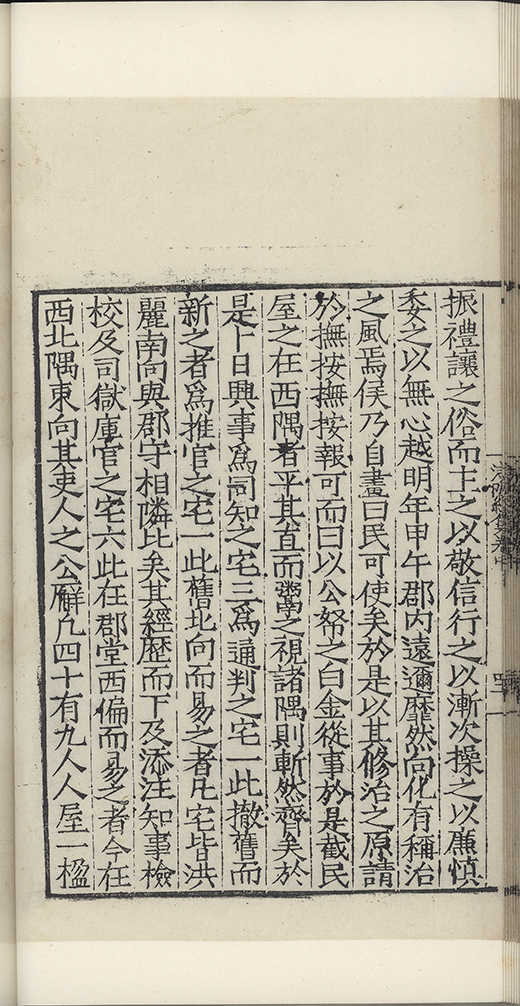 振禮讓之俗而主之以敬信行之以漸次操之以廉慎
委之以無心越明年甲午郡內遠邇靡然尚化有稱治
之風焉侯乃自畫曰民可使矣於是以其修治之原請
於撫按撫按報可而曰以公帑之白金從事於是截民
屋之在西隅者平其直而鬻之視諸隅則斬然齊矣於
是卜日興事爲同知之宅三爲通判之宅一此撤舊而
新之者爲推官之宅一此舊北向而易之者凡宅皆洪
麗南向與郡守相隣比矣其經歷而下及添注知事檢
校及司獄庫官之宅六此在郡堂西偏而易之者今在
西北隅東向其吏人之公廨凡四十有九人人屋一楹